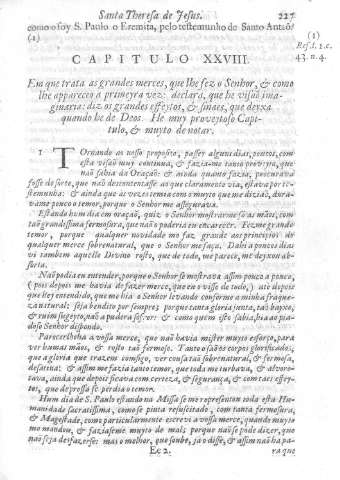 Santa Theresa de Jesus. 227
como o foy S. Paulo o Eremita, pelo testemunho de Santo Antaõ?
(1)
(1)
Ref. l. c.
43. n. 4.
CAPITULO XXVIII.
Em que trata as grandes merces, que lhe fez o Senhor, & como
lhe appareceo a primeyra vez: declara, que he visaõ ima-
ginaria: diz os grandes effeytos, & sinaes, que deyxa
quando he de Deos. He muy proveytoso Capi-
tulo, & muyto de notar.
1 TOrnando ao nosso proposito, passey alguns dias, poucos, com
esta visaõ muy continua, & fazia-me tanto proveyto, que
naõ sahia da Oraçaõ: & ainda quanto fazia, procurava
fosse de sorte, que naõ descontentasse ao que claramente via, estava por tes-
temunha: & ainda que as vezes temia com o muyto que me diziaõ, dura-
va-me pouco o temor, porque o Senhor me assegurava.
Estando hum dia em oraçaõ, quiz o Senhor mostrarme só as mãos, com
taõ grandissima fermosura, que naõ o poderia eu encarecer. Fez-me grande
temor, porque qualquer novidade mo faz grande aos principios de
qualquer merce sobrenatural, que o Senhor me faça. Dahi a poucos dias
vi tambem aquelle Divino rosto, que de todo, me parece, me deyxou ab-
sorta.
Naõ podia eu entender, porque o Senhor se mostrava assim pouco a pouco,
(pois depois me havia de fazer merce, que eu o visse de todo,) até depois
que hey entendido, que me hia o Senhor levando conforme a minha fraque-
za natural: seja bendito por sempre; porque tanta gloria junta, taõ bayxo,
& ruim sugeyto, naõ a pudera sofrer: & como quem isto sabia, hia o pia-
doso Senhor dispondo.
Parecerlheha a vossa merce, que naõ havia mister muyto esforço, para
ver humas mãos, & rosto taõ fermoso. Tanto o saõ os corpos glorificados,
que a gloria que trazem comsigo, ver cousa taõ sobrenatural, & fermosa,
desatina: & assim me fazia tanto temor, que toda me turbava, & alvoro-
tava, ainda que depois ficava com certeza, & segurança, & com taes effey-
tos, que depressa se perdia o temor.
Hum dia de S. Paulo estando na Missa se me representou toda esta Hu-
manidade sacratissima, como se pinta resuscitado, com tanta fermosura,
& Magestade, como particularmente escrevi a vossa merce, quando muyto
mo mandou, & fazia-seme muyto de mal; porque naõ se póde dizer, que
naõ seja desfazerse: mas o melhor, que soube, já o disse, & assim naõ ha pa-
Ee 2. ra que